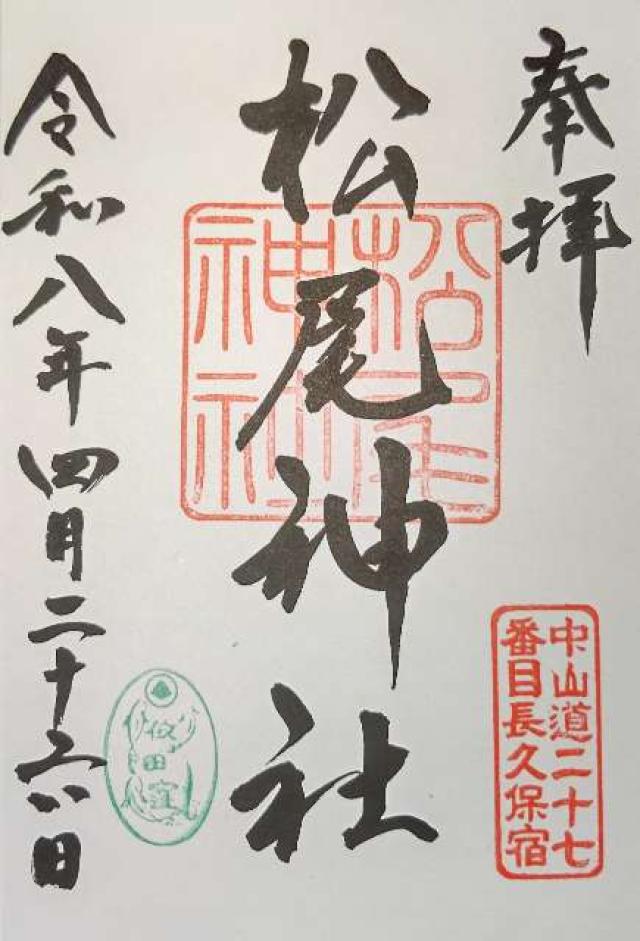 奉拝
松尾神社
松尾
神社
中山道二十七
番目長久保宿
令和八年四月二十六日